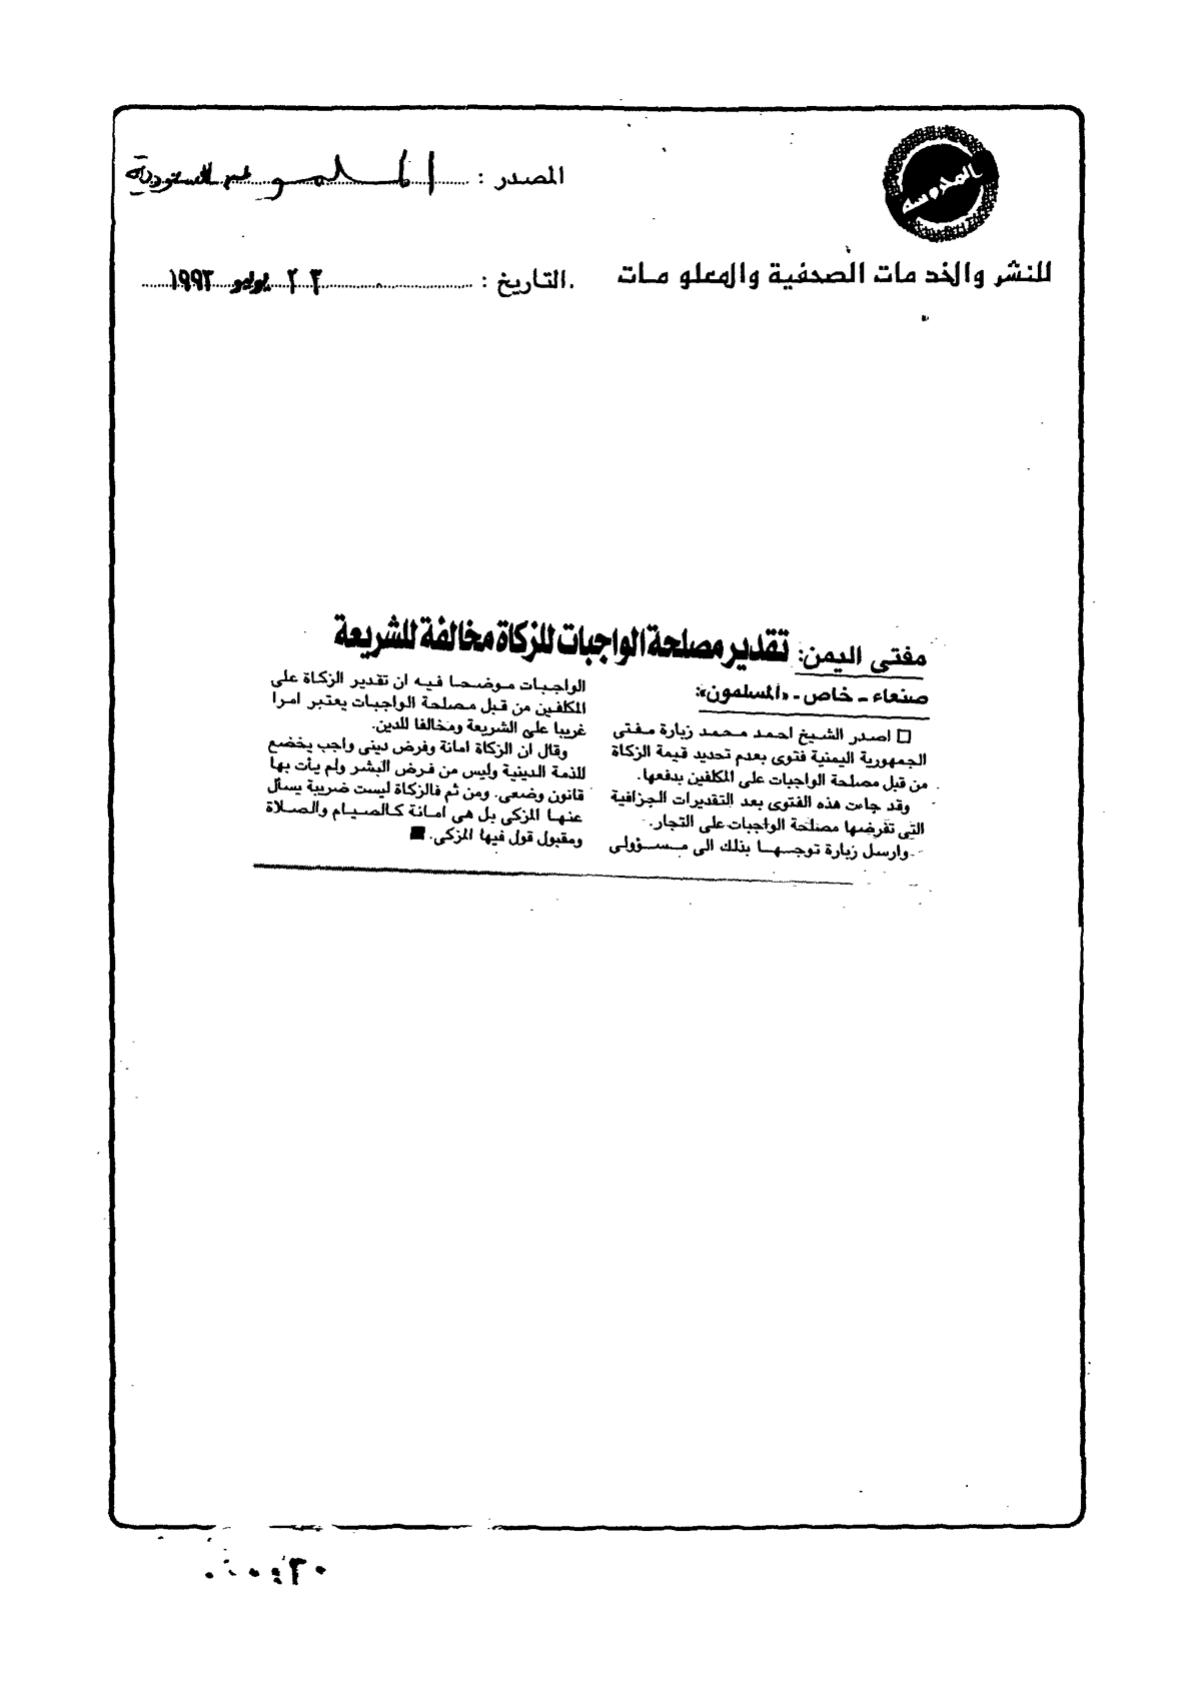 المصدر : المسلمون السعودية
للنشر والخدمات الصحفية والمعلومات
التاريخ : ٢٣ يوليو ١٩٩٢
مفتى اليمن: تقدير مصلحة الواجبات للزكاة مخالفة للشريعة
صنعاء - خاص - «المسلمون»:
□ اصدر الشيخ احمد محمد زبارة مفتى
الجمهورية اليمنية فتوى بعدم تحديد قيمة الزكاة
من قبل مصلحة الواجبات على المكلفين بدفعها.
وقد جاءت هذه الفتوى بعد التقديرات الجزافية
التى تفرضها مصلحة الواجبات على التجار.
وارسل زبارة توجيها بذلك الى مسؤولى
الواجبات موضحا فيه ان تقدير الزكاة على
المكلفين من قبل مصلحة الواجبات يعتبر امرا
غريبا على الشريعة ومخالفا للدين.
وقال ان الزكاة امانة وفرض دينى واجب يخضع
للذمة الدينية وليس من فرض البشر ولم يأت بها
قانون وضعى. ومن ثم فالزكاة ليست ضريبة يسأل
عنها المزكى بل هى امانة كالصيام والصلاة
ومقبول قول فيها المزكى. ■